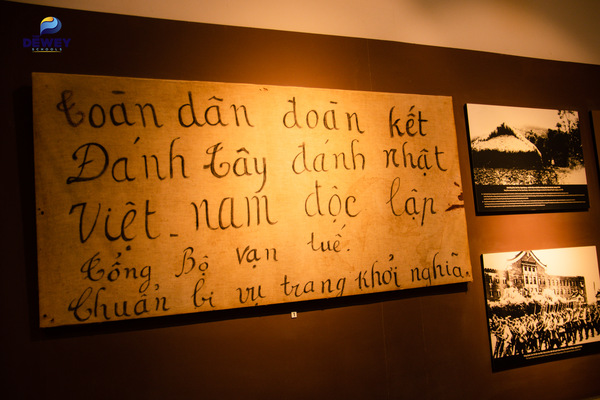 DEWEY
SCHOOLS
toàn dân đoàn kết
Đánh tây đánh nhật
Việt_nam độc lập
tổng Bộ vạn tuế.
Chuẩn bị vụ trang khởi nghĩa.